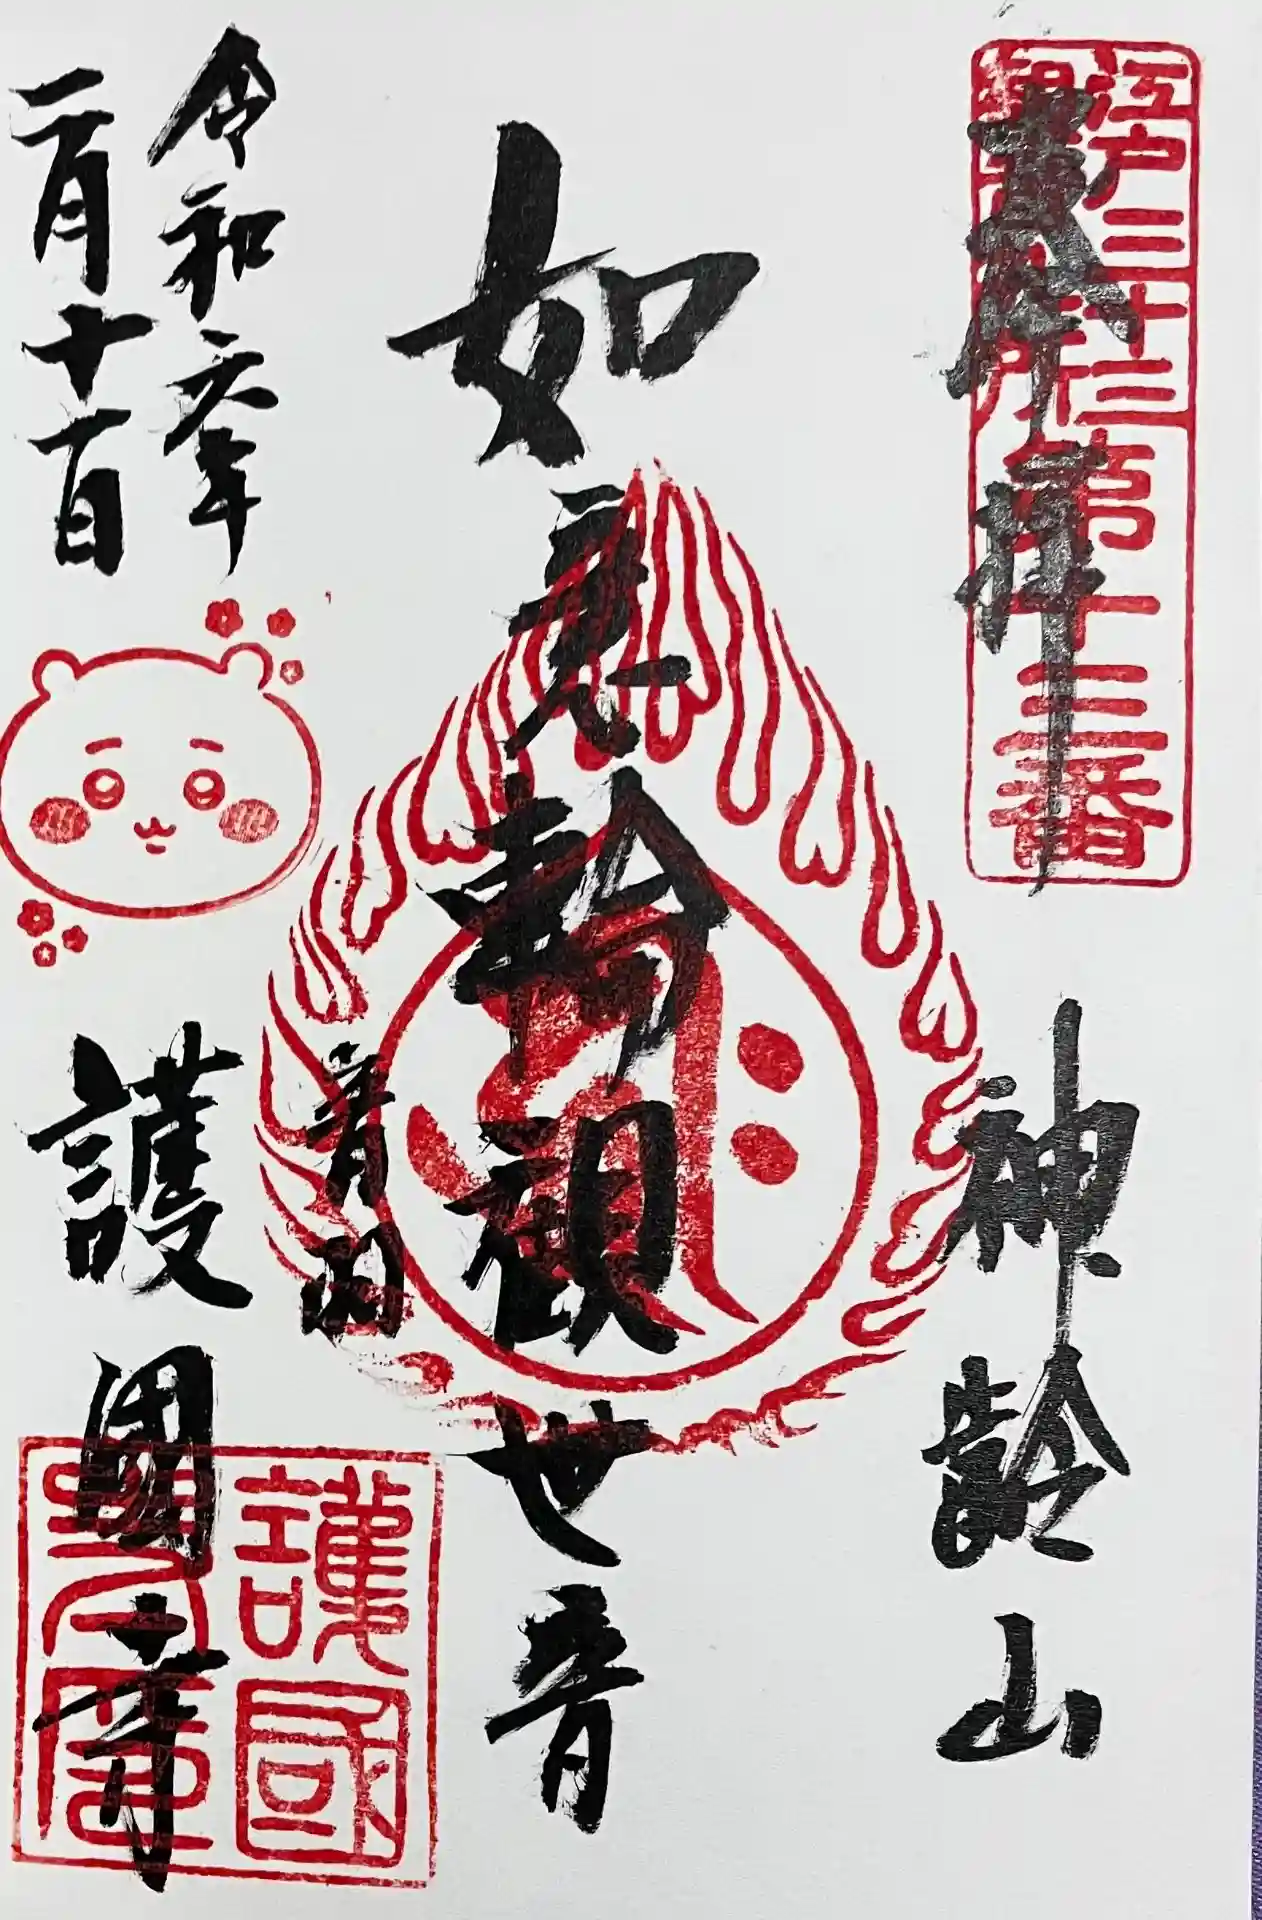 江戸三十三
観音札所
第十三番
奉拝
神齢山
如意輪観世音
音羽
令和六年
二月十一日
護國寺
護國